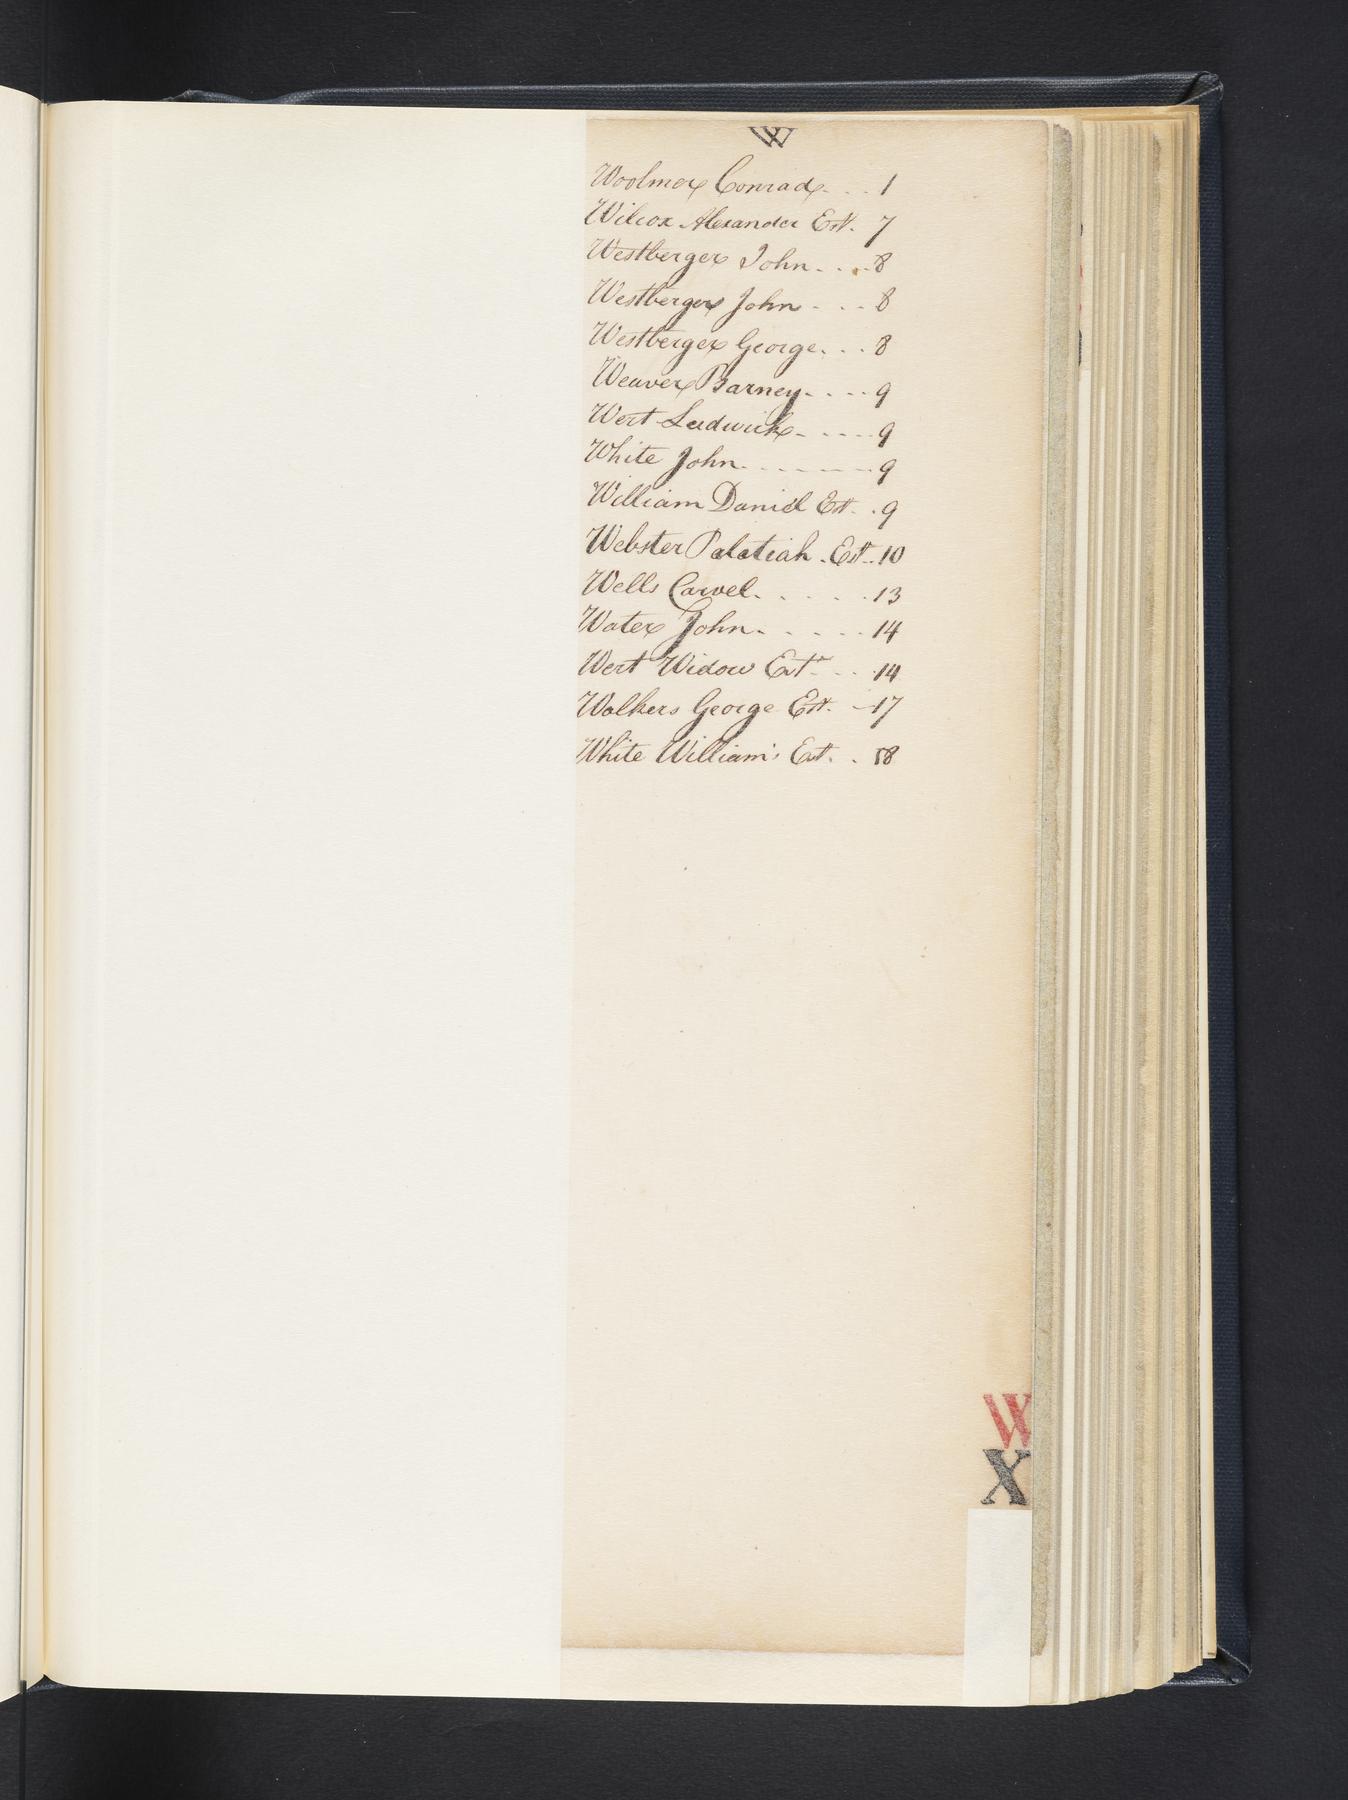 W
Woolmer Conrad . . . 1
Wilcox Alexander Est. 7
Westberger John . . . . 8
Westberger John - . . . 8
Westberger George . . . 8
Weaver Barney . . . . 9
Wert Ludwick - . . . . 9
White John . - - - - - - 9
William Daniel Est. . 9
Webster Palatiah . Est. . 10
Wells Carvel . . . . . . 13
Water John . . . . . . 14
Wert Widow Est. . . . 14
Walkers George Est. - 17
White William's Est. . 18
W
X